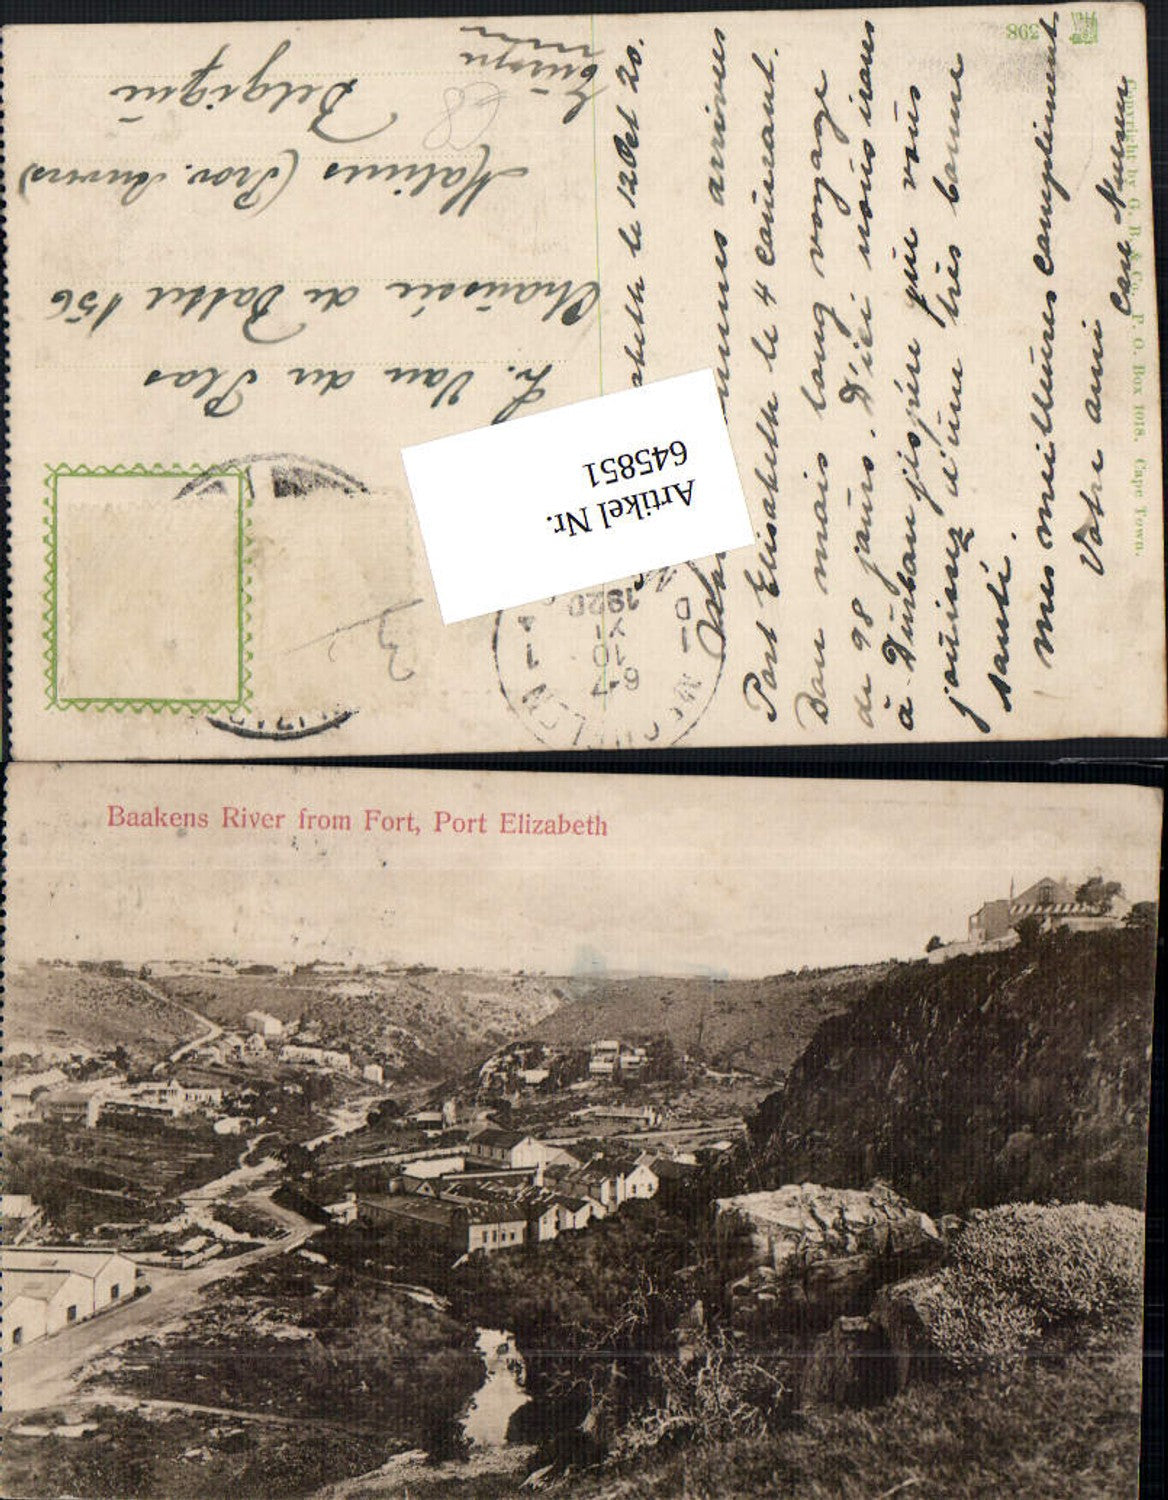 398
Copyright by G. B. & Co. P. O. Box 1018. Cape Town.
le 12 Oct 20.
arrivés
Port Elisabeth le 4 courant.
Bon mais long voyage
de 98 jours. D'ici nous irons
à Durban j'éspère que vous
jouissez d'une très bonne
santé.
mes meilleures compliments
Votre ami
L. Van der Plas
Chaussée de Battel 156
Malines (Prov. Anvers)
Belgique
Europe
68
1920
X-10
Artikel Nr.
645851
Baakens River from Fort, Port Elizabeth